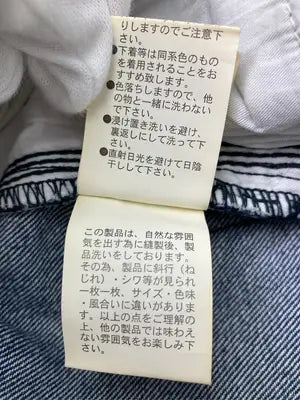 りしますのでご注意下
さい。
●下着等は同系色のもの
を着用されることをお
すすめ致します。
●色落ちしますので、他
の物と一緒に洗わない
で下さい。
●浸け置き洗いを避け、
裏返しにして洗って下
さい。
●直射日光を避けて日陰
干しして下さい。
この製品は、自然な雰囲
気を出す為に縫製後、製
品洗いをしております。
その為、製品に斜行(ね
じれ)・シワ等が見られ
一枚一枚、サイズ・色味
・風合いに違いがありま
す。以上の点をご理解の
上、他の製品では味わえ
ない雰囲気をお楽しみ下
さい。